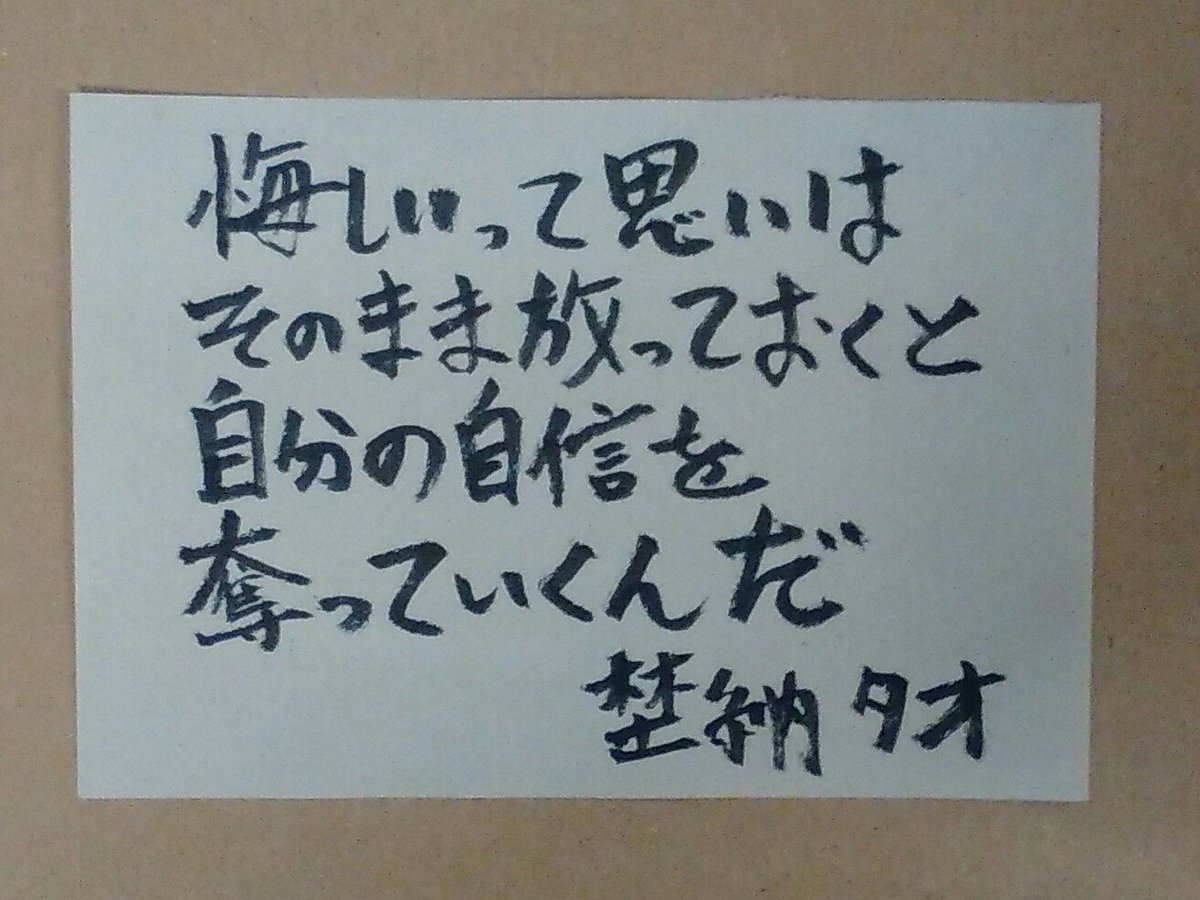 悔しいって思いは
そのまま放っておくと
自分の自信を
奪っていくんだ
埜納タオ